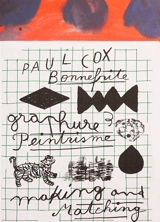 PAUL COX
Bonnefrite
graphure &
Peintrisme
making and
Matching